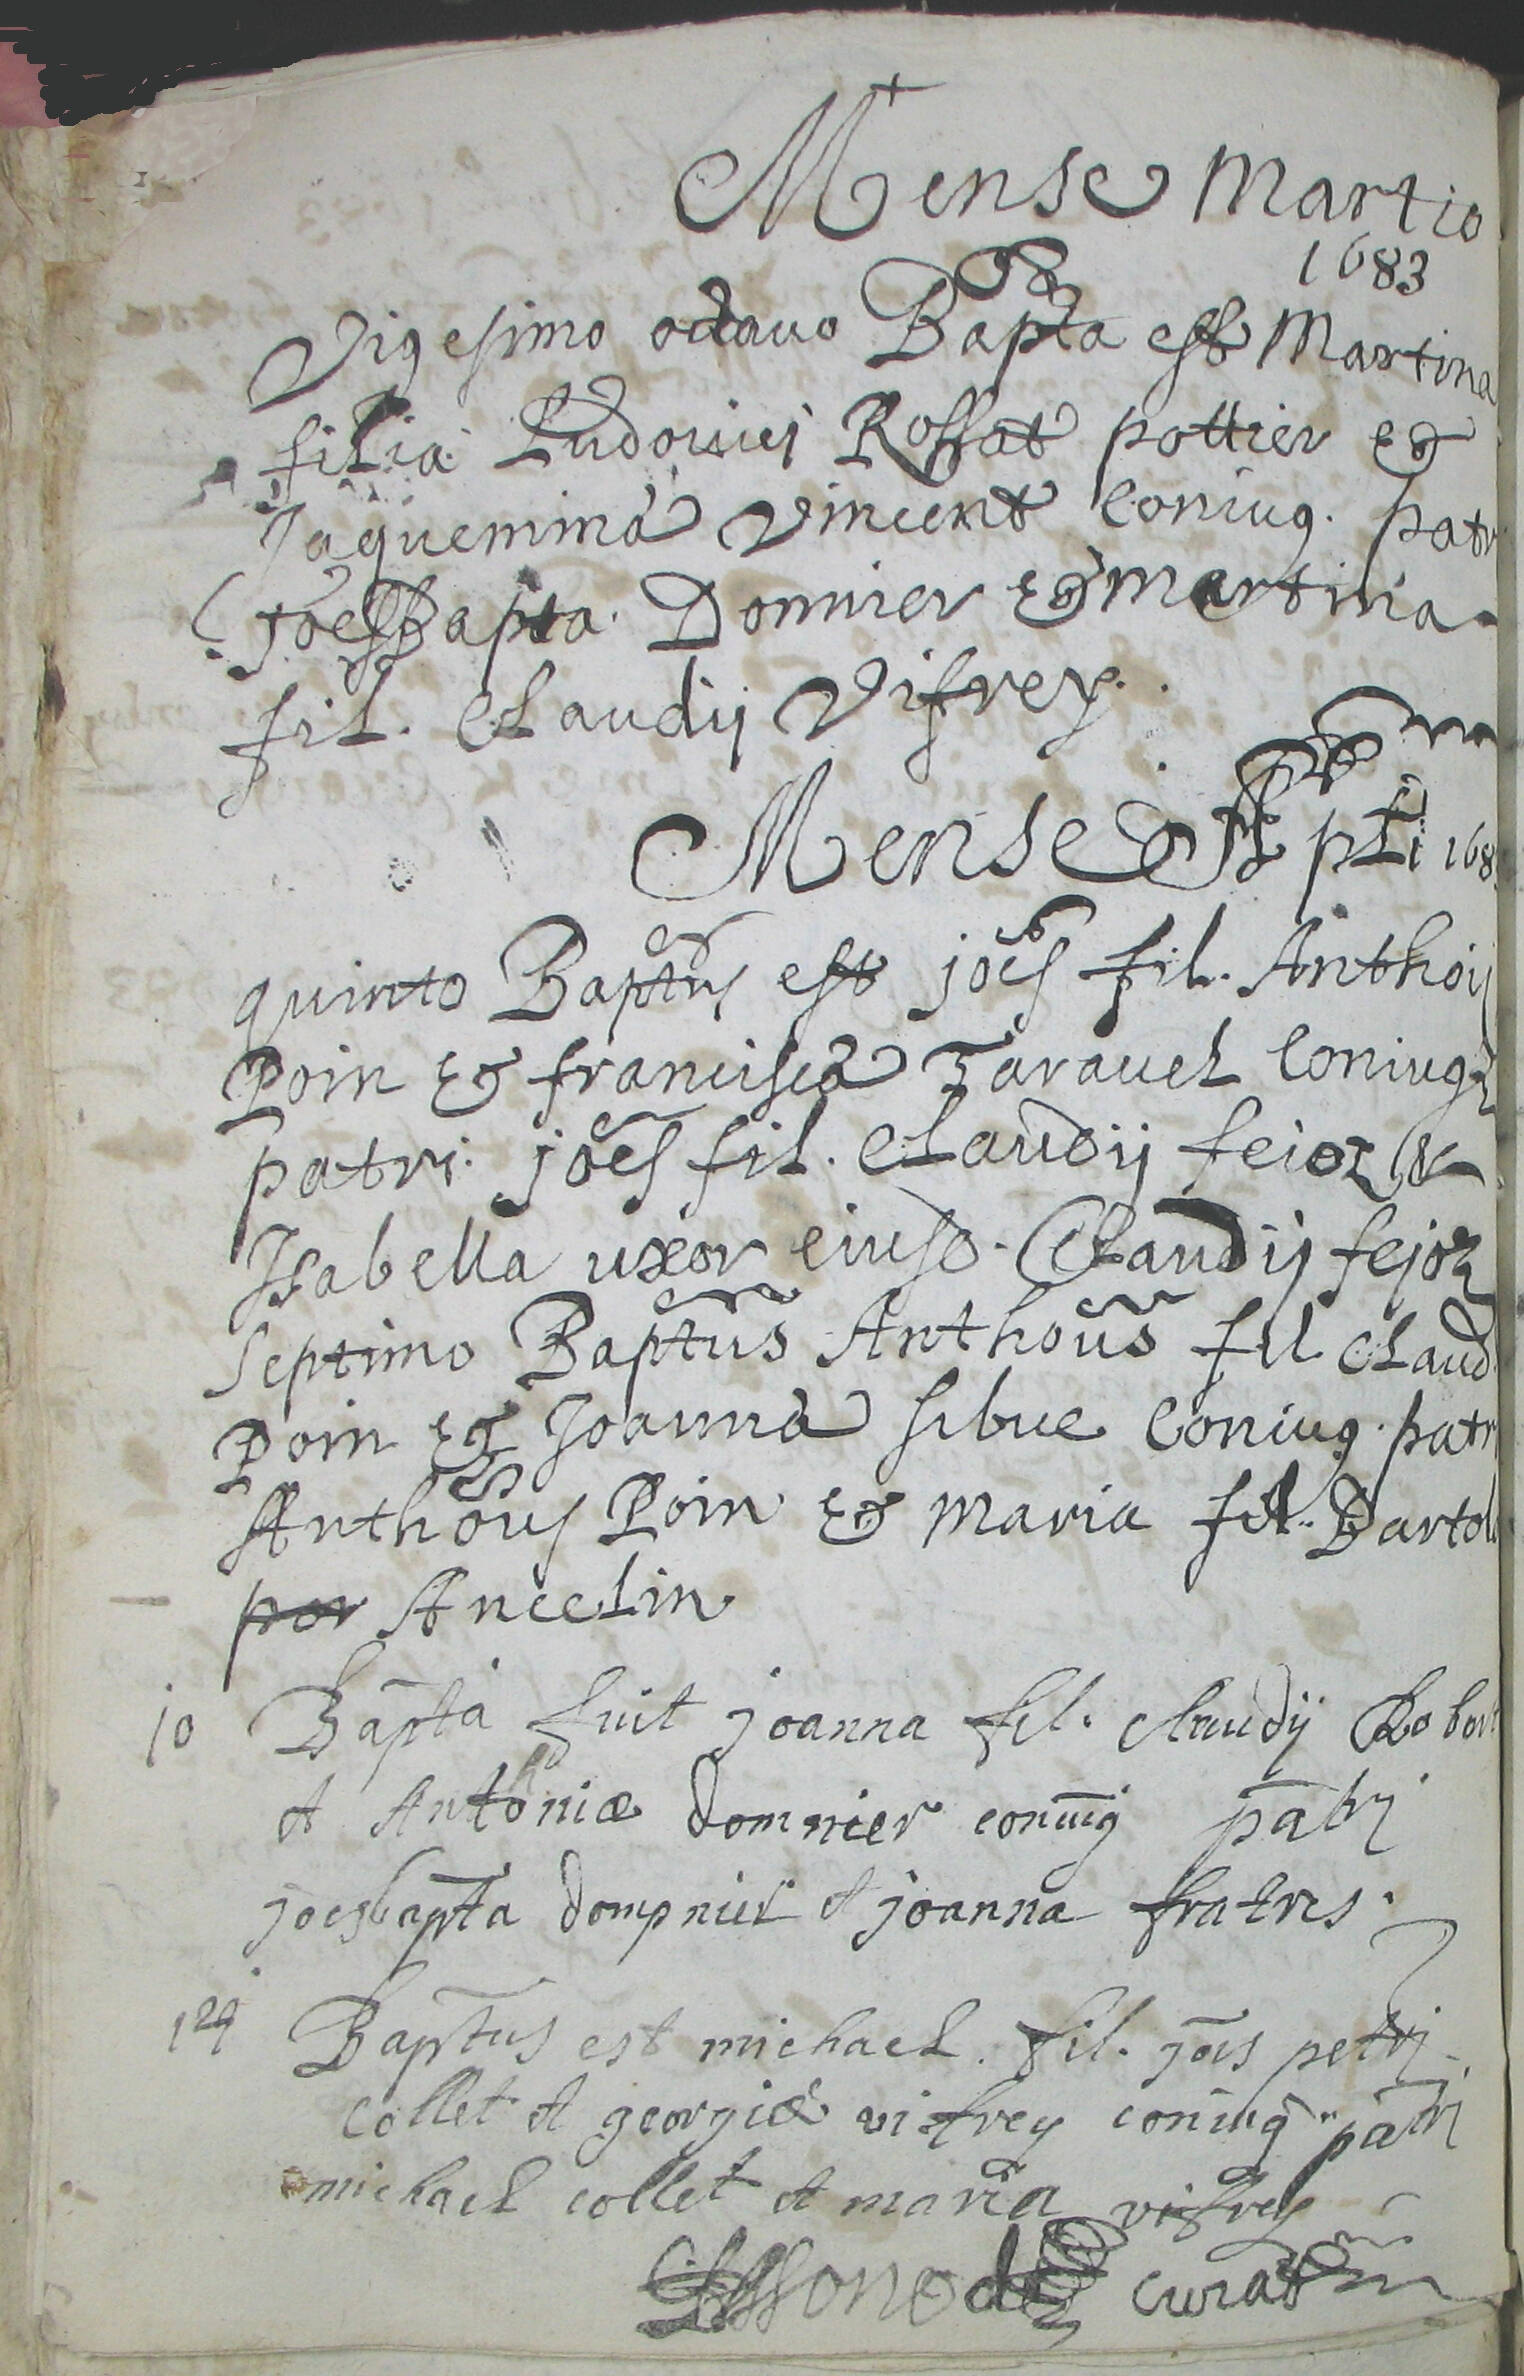 Mense Martio
1683
Vigesimo octavo Bapta est Martina
filia Ludovici Rossat pottier et
Jaquemina Vincent Coniug. patr
Joesbapta. Domnier et martina
fil. Claudij Vifrey.
Mense 168
quinto Baptus est joes fil. Anthoij
Poin et francisca Taravel Coniug
patri. joes fil. Claudij fejoz &
Isabella uxor eiusd. Claudij fejoz
septimo Baptus Anthous fil Claud
Poin et Joanna sibue Coniug. patr
Anthous Poin et maria fil. Bartol
por Ancelin
10 Bapta fuit joanna fil. claudij Robert
et Anthoniæ domnier coniug patri
joesbapta dompnier et joanna fratres.
Baptus est michael. fil. jois petri
collet et georgiæ vifrey coniug patri
michael collet et maria vifrey
curat